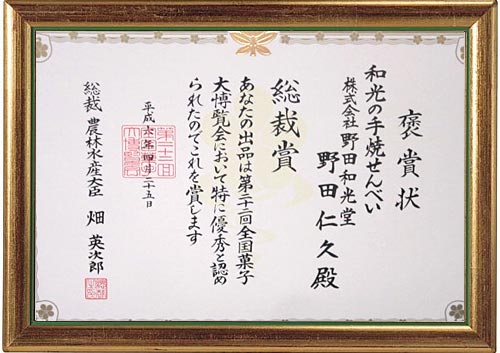 褒賞状
和光の手焼せんべい
株式会社野田和光堂
野田仁久殿
総裁賞
あなたの出品は第二十二回全国菓子
大博覧会において特に優秀と認め
られたのでこれを賞します
平成六年四月二十五日
総裁 農林水産大臣 畑 英次郎